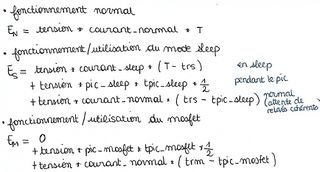 • fonctionnement normal
E_N = tension * courant_normal * T
• fonctionnement/utilisation du mode sleep
E_S = tension * courant_sleep * (T - trs) en sleep
+ tension * pic_sleep * tpic_sleep * 1/2 pendant le pic
+ tension * courant_normal * (trs - tpic_sleep) normal (attente de relevés cohérents)
• fonctionnement/utilisation du mosfet
E_M = 0
+ tension * pic_mosfet * tpic_mosfet * 1/2
+ tension * courant_normal * (trm - tpic_mosfet)